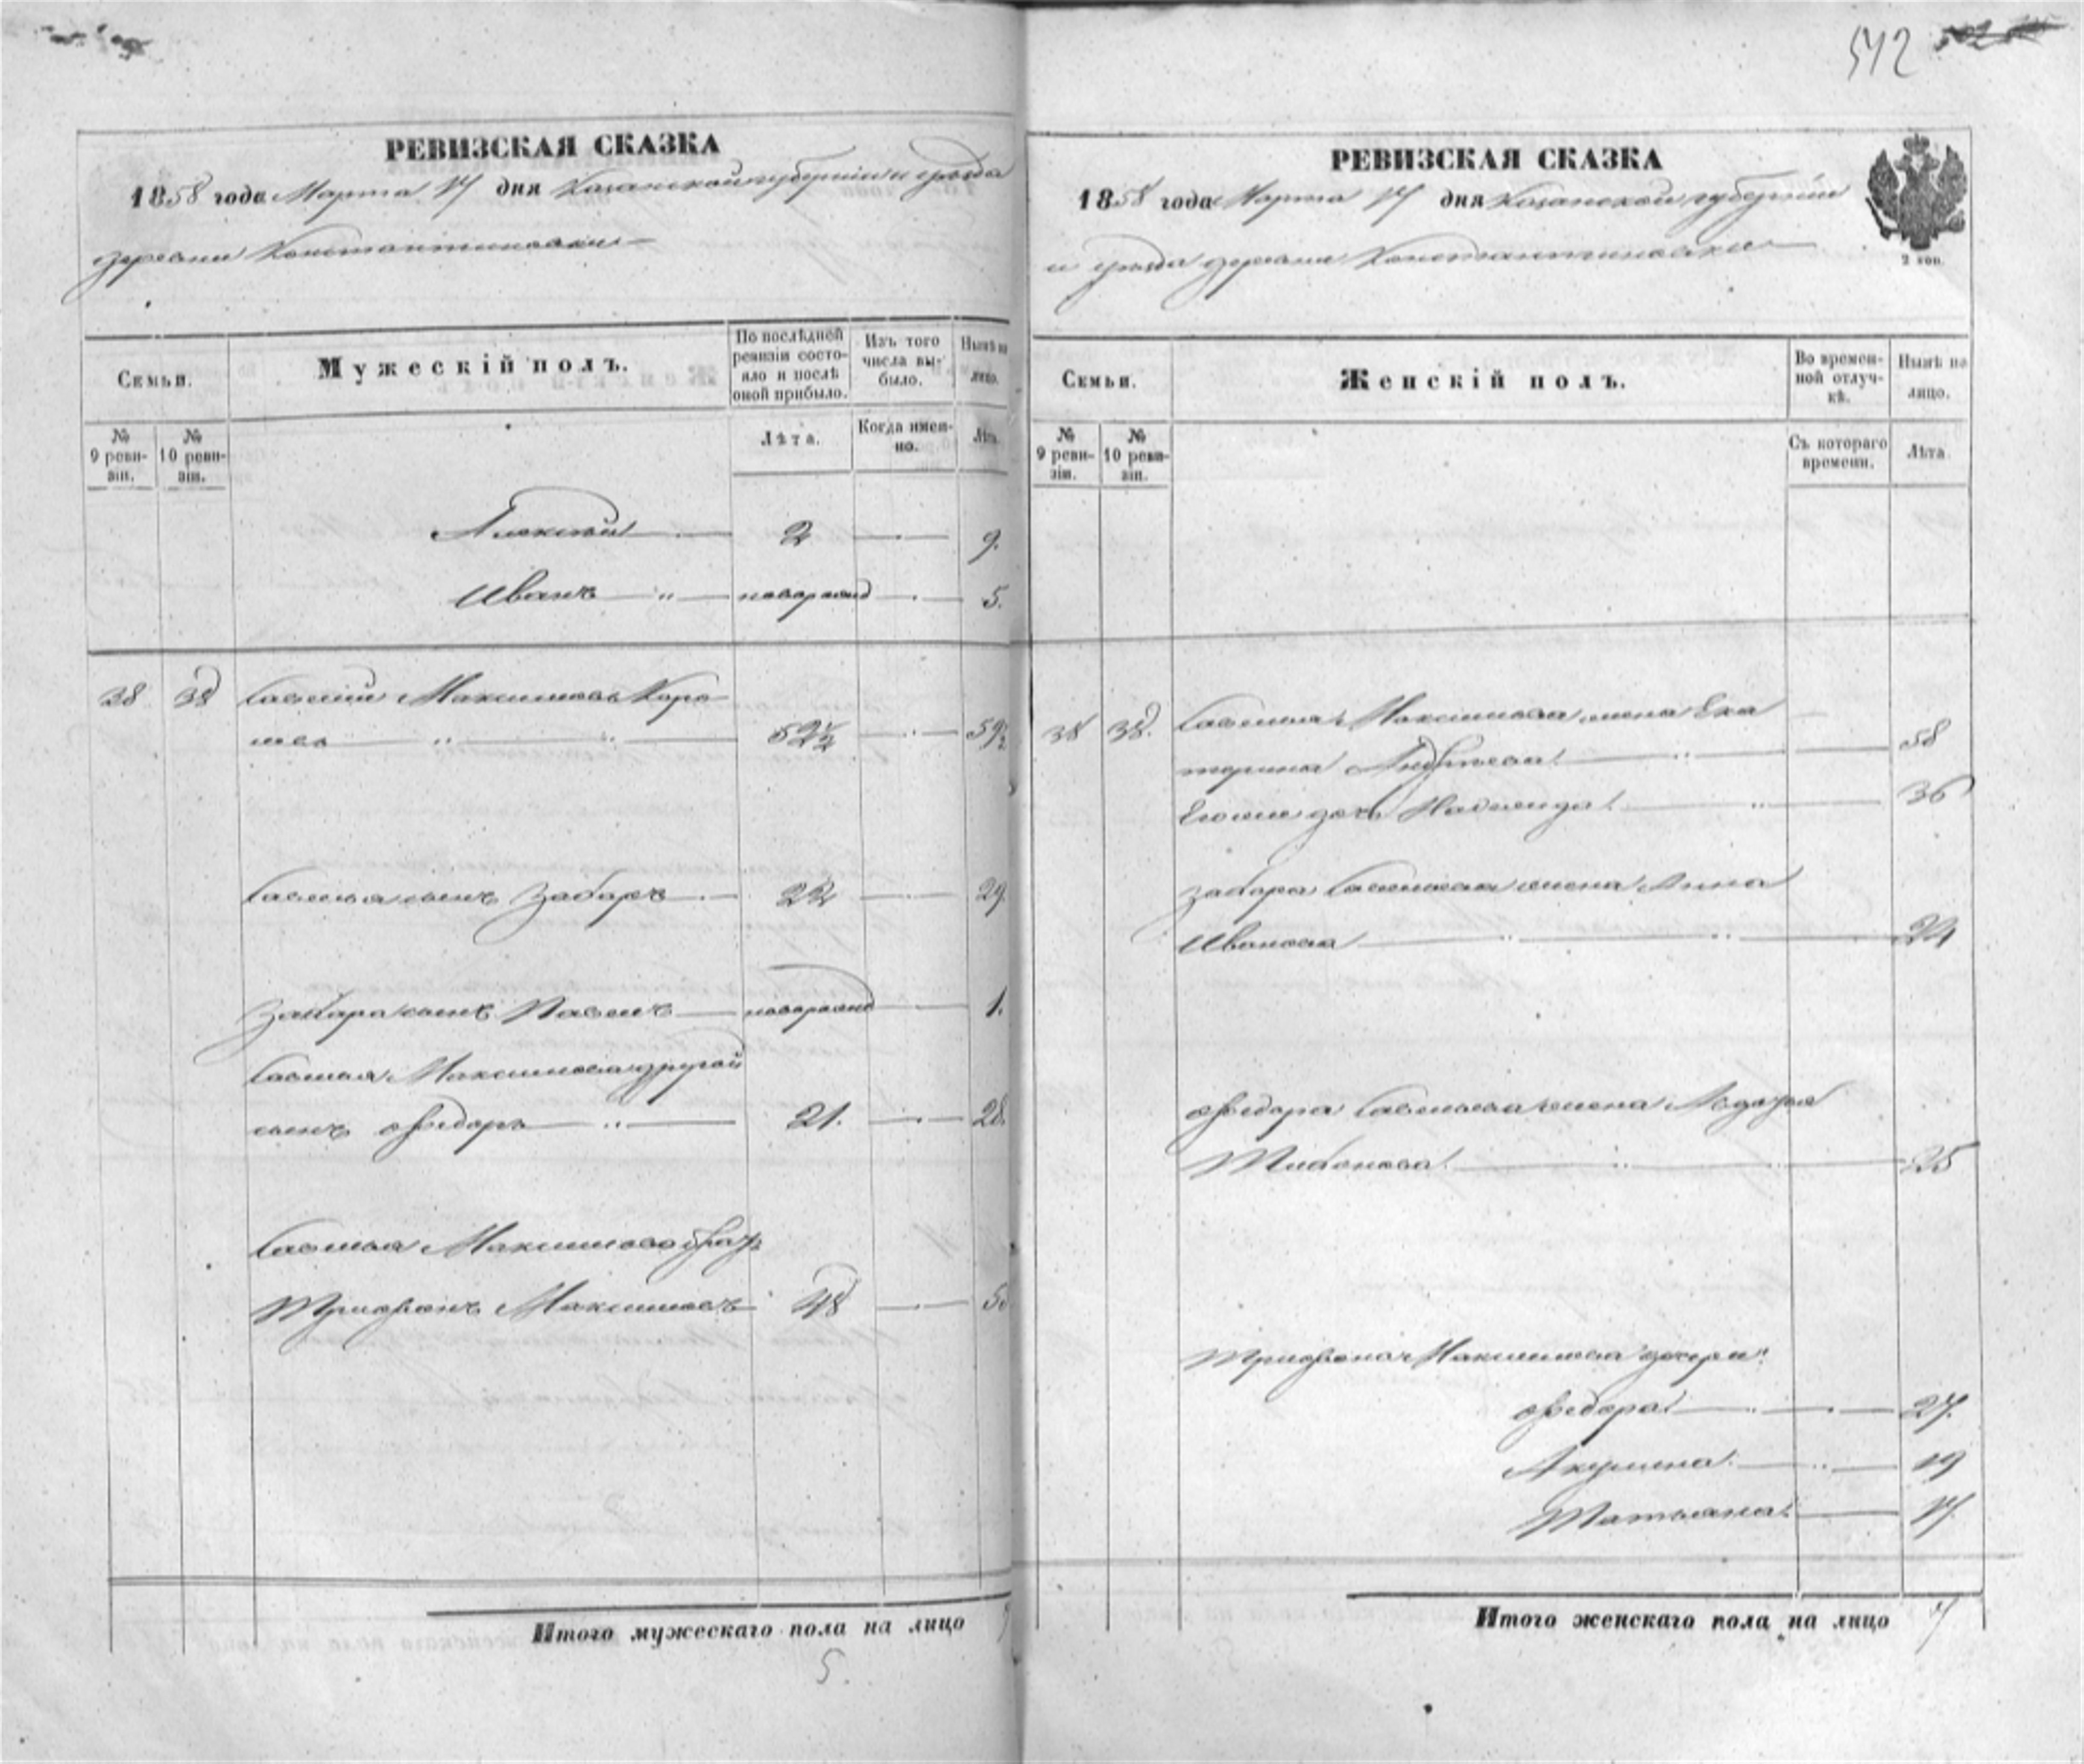 542
РЕВИЗСКАЯ СКАЗКА
1858 года Марта 17 дня Казанской губерніи и уѣзда
деревни Константиновки
Семьи.
Мужескій полъ.
По послѣдней ревизіи состояло и послѣ оной прибыло.
Изъ того числа выбыло.
Нынѣ на лицо.
№ 9 ревизіи.
№ 10 ревизіи.
Лѣта.
Когда именно.
Лѣта.
Алексѣй 2 9.
Иванъ новорожд 5.
38 38 Савелий Максимовъ
52½ 59½
Савелья сынъ Захаръ 22 29
Захара сынъ Павелъ новорожд 1.
Савелья Максимова другой
сынъ Ѳедоръ 21. 28.
Савелья Максимова братъ
Трифонъ Максимовъ 48
Итого мужескаго пола на лицо 7
5.
РЕВИЗСКАЯ СКАЗКА
1858 года Марта 17 дня Казанской губерніи
и уѣзда деревни Константиновки
2 коп.
Семьи.
Женскій полъ.
Во временной отлучкѣ.
Нынѣ на лицо.
№ 9 ревизіи.
№ 10 ревизіи.
Съ котораго времени.
Лѣта
38 38. Савелья Максимова жена Ека
терина Андреева 58
дочь Надежда 36
Захара Савельева жена Анна
Иванова 24
Ѳедора Савельева жена
25
Трифона Максимова дочери:
Ѳедора 27.
Акулина 19
Татьяна 17.
Итого женскаго пола на лицо 7